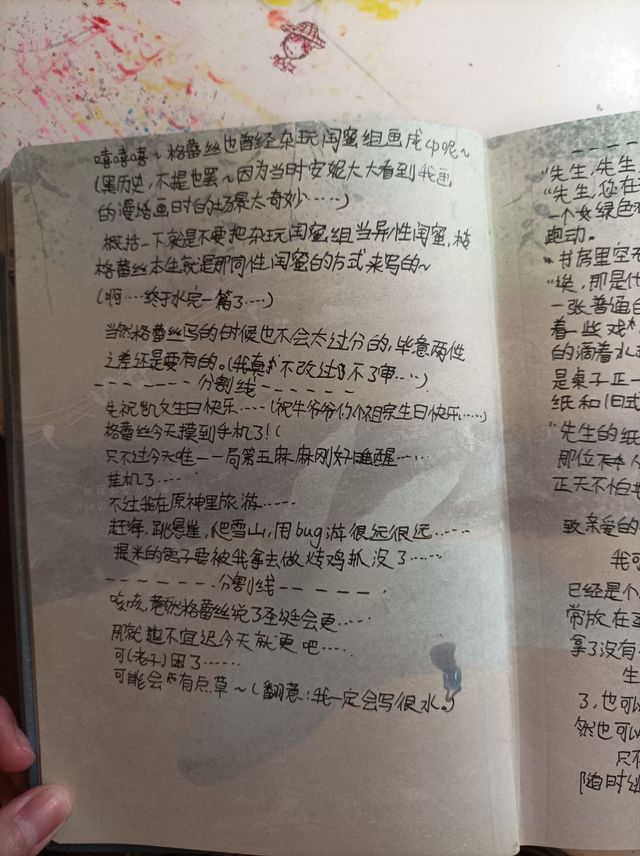 嘻嘻嘻~格蕾丝也曾经杂玩闺蜜组画成中呢~
(黑历史,不提也罢~因为当时安妮太太看到我画
的漫塔画时的场景太奇妙……)
概括一下就是不要把杂玩闺蜜组当异性闺蜜,
格蕾丝本生就是那同性闺蜜的方式来写的~
(啊…终于水完一篇了……)
当然格蕾丝写的时候也不会太过分的,毕竟两性
之差还是要有的。(我真 不改过 不了审……)
------分割线------
先祝凯文生日快乐……(祝牛爷爷们的祖宗生日快乐……)
格蕾丝今天摸到手机了!(
只不过今天唯一一局第五麻麻刚好睡醒……
挂机了……
不过我在原神里旅游……
赶海,跳悬崖,爬雪山,用bug游很远很远……
提米的鸽子要被我拿去做烤鸡抓没了……
-------分割线-------
咳咳,竟然格蕾丝说了圣诞会更……
那就 不宜迟今天就更吧……
可(老子)困了……
可能会 有点草~(翻意:我一定会写很水。)
"先生,先生
"先生,您在
一个女绿色
跑动。
书房里空无
"唉,那是什
一张普通的
着一些戏
的滴着水
是桌子正一
纸和旧式
"先生的纸
那位 本人
正天不怕
致亲爱的
我可
已经是个
常放在
拿了没有
生
3,也可
然也可以
只不
随时